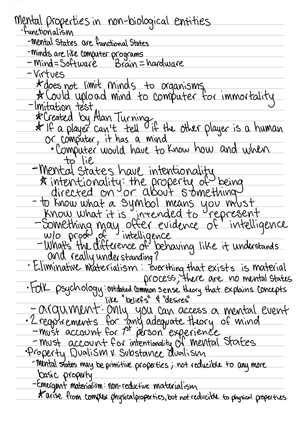 Mental properties in non-biological entities
•functionalism
-Mental States are functional States
-Minds are like computer programs
-mind=Software Brain=hardware
-Virtues
★does not limit minds to organisms
★Could upload mind to computer for immortality
-Imitation test
★Created by Alan Turning
★If a player can't tell if the other player is a human
or computer, it has a mind
•Computer would have to know how and when
to lie
-Mental States have intentionality
★intentionality: the property of being
directed on or about something
-to know what a symbol means you must
know what it is intended to represent
-Something may offer evidence of intelligence
w/o proof of intelligence
-What's the difference of behaving like it understands
and really understanding?
•Eliminative materialism: Everything that exists is material
process; there are no mental states
•Folk psychology: outdated common sense theory that explains concepts
like "beliefs" & "desires"
-argument: Only you can access a mental event
•2 requirements for any adequate theory of mind
-must account for 1st person experience
-must account for intentionality of mental States
•Property Dualism & Substance dualism
-Mental states may be primitive properties; not reducible to any more
basic property
-Emergent materialism: non-reductive materialism
★arise from complex physical properties, but not reducible to physical properties